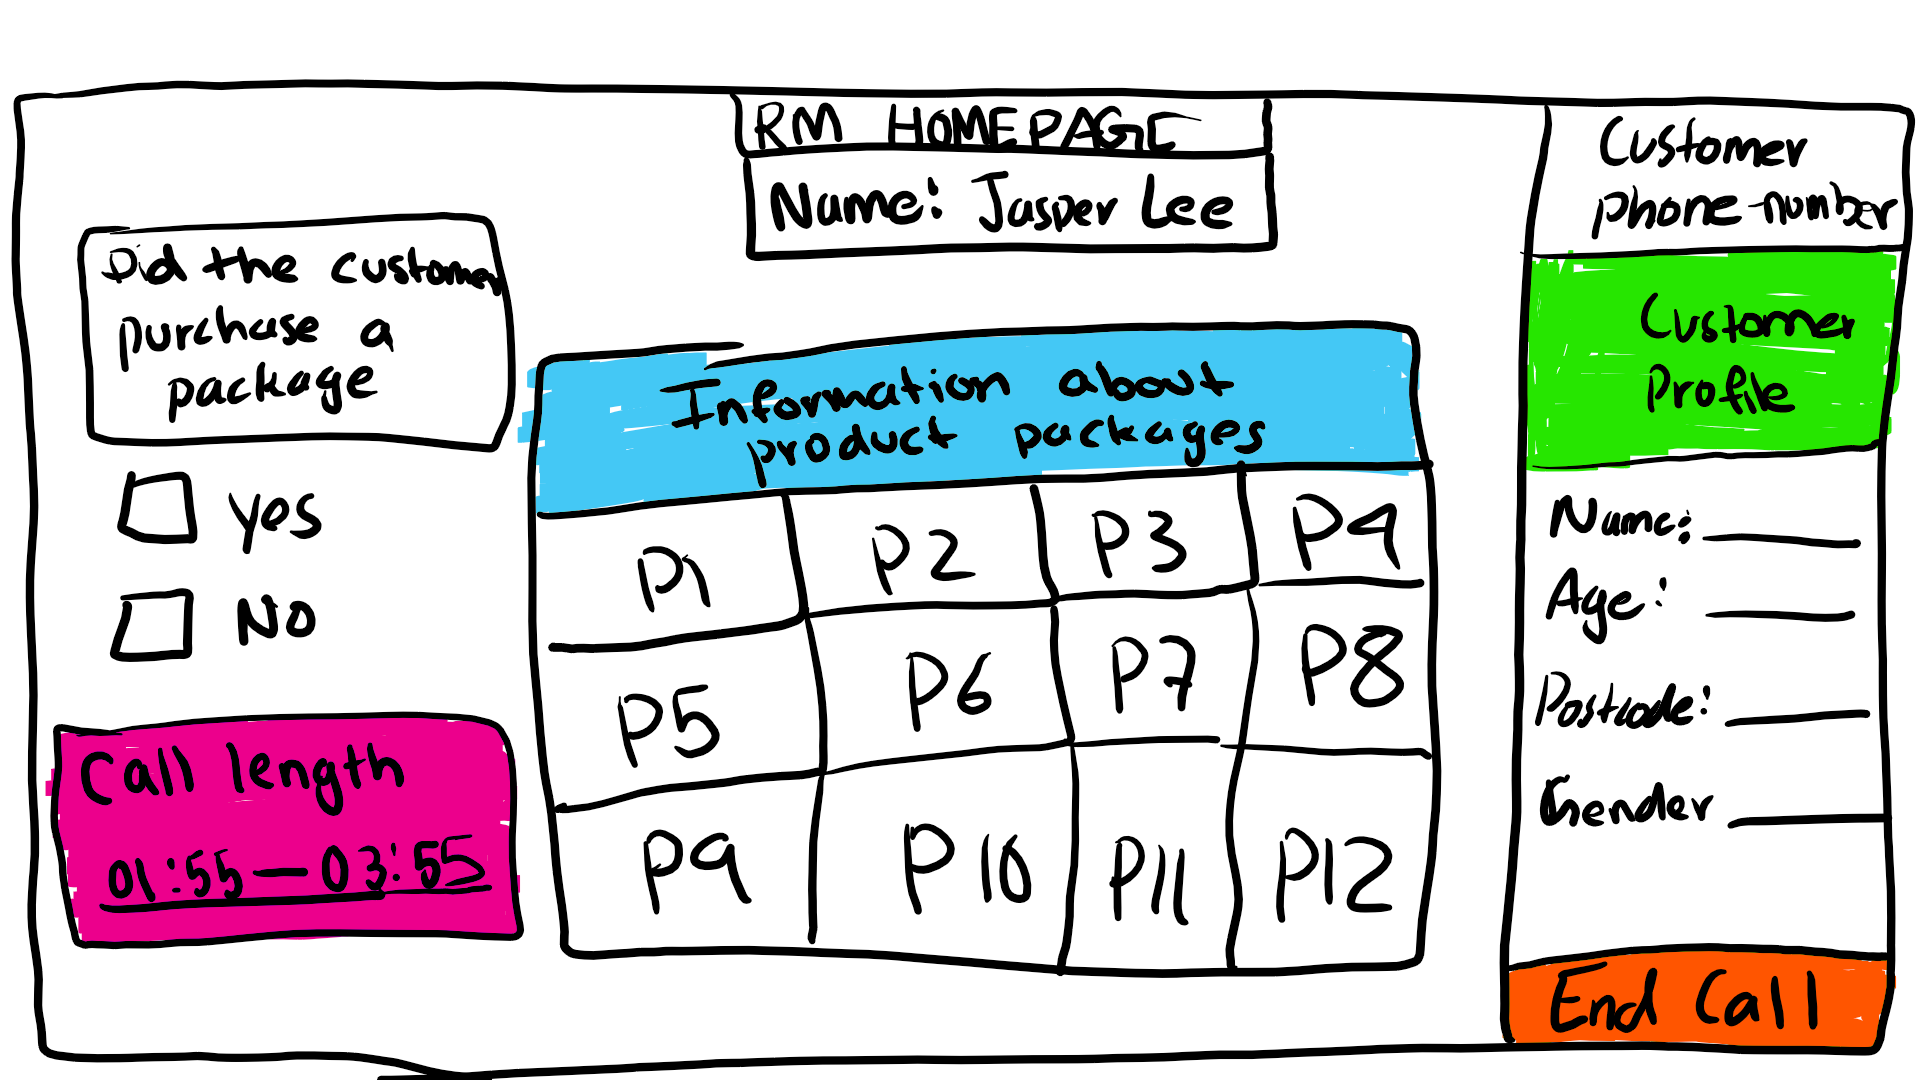 RM HOMEPAGE
Name: Jasper Lee
Did the customer
purchase a
package
Yes
No
Call length
01:55—03:55
Information about
product packages
P1 P2 P3 P4
P5 P6 P7 P8
P9 P10 P11 P12
Customer
phone number
Customer
Profile
Name:
Age:
Postcode:
Gender
End Call